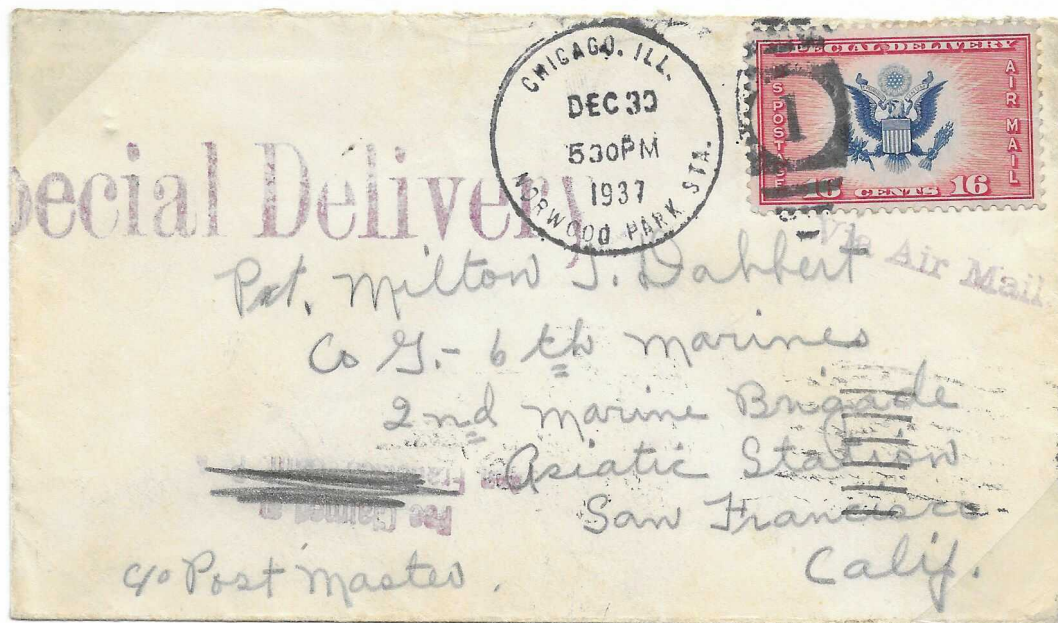 CHICAGO, ILL.
DEC 30
530PM
1937
NORWOOD PARK STA.
SPECIAL DELIVERY
AIR MAIL
CENTS 16
1
pecial Delivery
Via Air Mail
Pvt. Milton J. Dahbert
Co G.- 6th Marines
2nd Marine Brigade
Asiatic Station
San Francisco
Calif.
c/o Post Master.
Fee Claimed